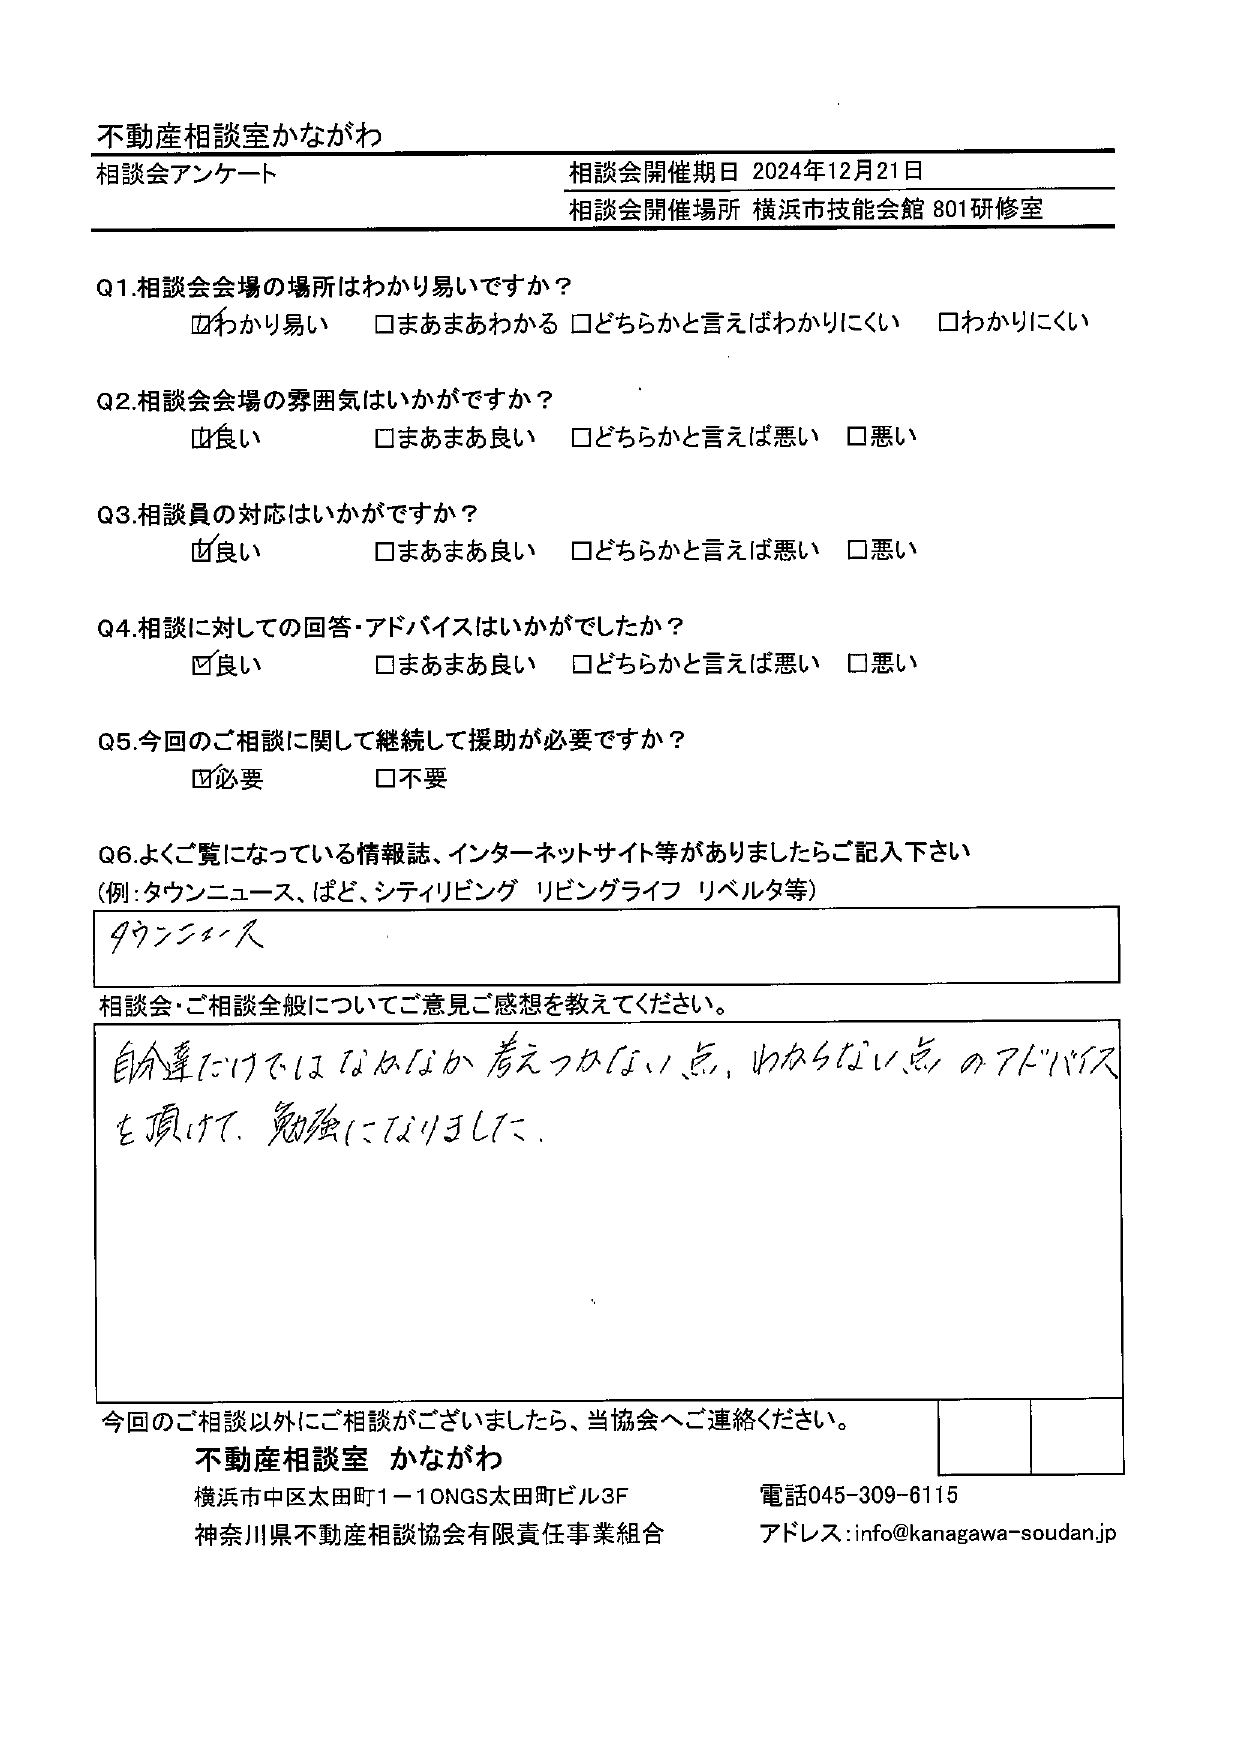 不動産相談室かながわ
相談会アンケート
相談会開催期日 2024年12月21日
相談会開催場所 横浜市技能会館 801研修室
Q1.相談会会場の場所はわかり易いですか？
☑わかり易い □まあまあわかる □どちらかと言えばわかりにくい □わかりにくい
Q2.相談会会場の雰囲気はいかがですか？
☑良い □まあまあ良い □どちらかと言えば悪い □悪い
Q3.相談員の対応はいかがですか？
☑良い □まあまあ良い □どちらかと言えば悪い □悪い
Q4.相談に対しての回答・アドバイスはいかがでしたか？
☑良い □まあまあ良い □どちらかと言えば悪い □悪い
Q5.今回のご相談に関して継続して援助が必要ですか？
☑必要 □不要
Q6.よくご覧になっている情報誌、インターネットサイト等がありましたらご記入下さい
(例：タウンニュース、ぱど、シティリビング リビングライフ リベルタ等)
タウンニュース
相談会・ご相談全般についてご意見ご感想を教えてください。
自分達だけではなかなか考えつかない点、わからない点のアドバイス
を頂けて、勉強になりました.
今回のご相談以外にご相談がございましたら、当協会へご連絡ください。
不動産相談室 かながわ
横浜市中区太田町1－10NGS太田町ビル3F 電話045-309-6115
神奈川県不動産相談協会有限責任事業組合 アドレス：info@kanagawa-soudan.jp